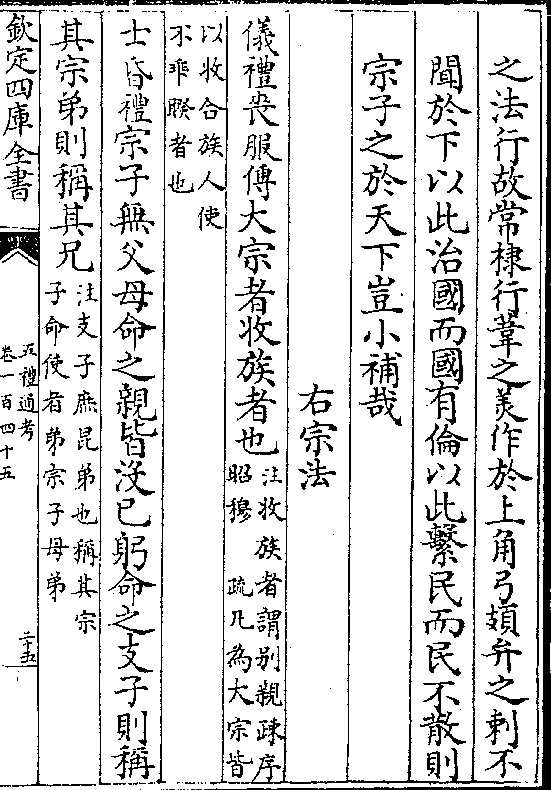 之法行故常棣行葦之美作於上角弓頍弁之刺不
聞於下以此治國而國有倫以此繫民而民不散則
宗子之於天下豈小補哉
右宗法
儀禮喪服傳大宗者收族者也注收族者謂別親疎序
昭穆 疏凡為大宗皆
以收合族人使
不乖睽者也
士昏禮宗子無父母命之親皆沒已躬命之支子則稱
其宗弟則稱其兄注支子庶昆弟也稱其宗
子命使者弟宗子母弟
欽定四庫全書
五禮通考
卷一百四十五
二十五